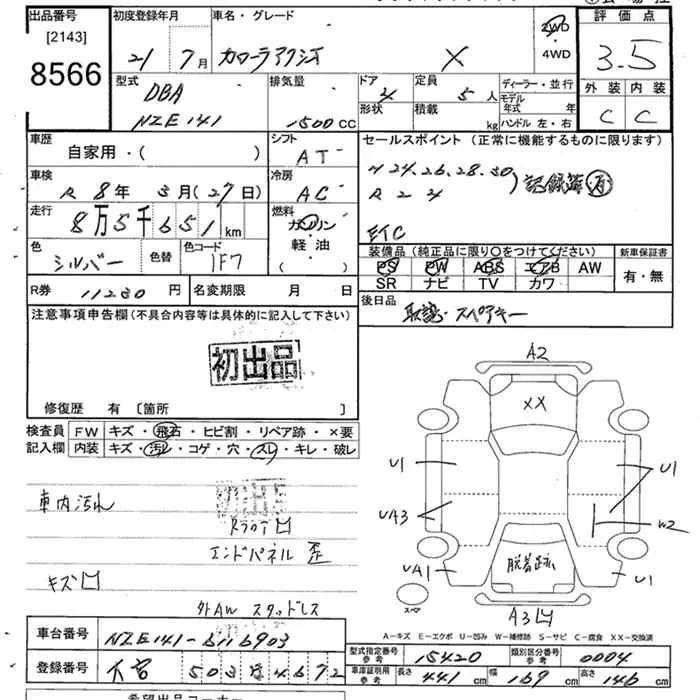 出品番号
[2143]
8566
初度登録年月
21年 7月
車名・グレード
カローラアクシオ X
2WD
・
4WD
評価点
3.5
外装 内装
C C
型式
DBA
NZE141
排気量
1500 CC
ドア
4
形状
定員
5人
積載
kg
ディーラー・並行
モデル年式 年
ハンドル 左・右
車歴
自家用・( )
シフト
AT
車検
R 8年 3月(27日)
冷房
AC
走行
8万5千651km
燃料
ガソリン
・
軽・油
( )
色
シルバー
色替
色コード
1F7
セールスポイント (正常に機能するものに限ります)
H 24.26.28.30
R 2 4
)記録簿(有)
ETC
装備品(純正品に限り〇をつけてください)
PS PW ABS エアB AW
SR ナビ TV カワ
新車保証書
有・無
R券 11280円
名変期限 月 日
後日品
取説・スペアキー
注意事項申告欄(不具合内容等は具体的に記入して下さい)
初出品
修復歴 有 [箇所 ]
検査員
記入欄
FW キズ・飛石・ヒビ割・リペア跡・×要
内装 キズ・汚レ・コゲ・穴・スレ・キレ・破レ
車内汚れ
初出品
エンドパネル 歪
キズ凹
外AW スタッドレス
A2
XX
U1
U1
UA3
W2
UA1
脱着跡
U1
スペア
A3凹
A-キズ E-エクボ U-凹み W-補修跡 S-サビ C-腐食 XX-交換済
車台番号 NZE141-6116903
登録番号
503
4672
型式指定番号
参考
15420
類別区分番号
参考
0004
車庫証明用
参考
長さ 441cm
幅 169cm
高さ 146cm
希望出品コーナー